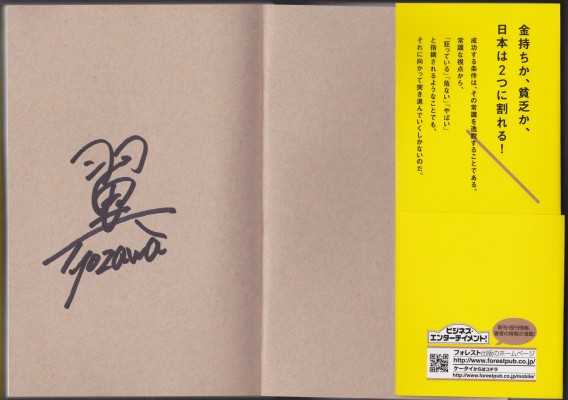 金持ちか、貧乏か、
日本は2つに割れる!
成功する条件は、その常識を逸脱することである。
常識な視点から、
「狂っている」「危ない」「やばい」
と指摘されるようなことでも、
それに向かって突き進んでいくしかないのだ。
翼
Tyozawa
ビジネス・
エンターテイメント!
新刊・既刊情報、
著者の情報が満載!
フォレスト出版のホームページ
http://www.forestpub.co.jp/
ケータイからはコチラ
http://www.forestpub.co.jp/mobile/